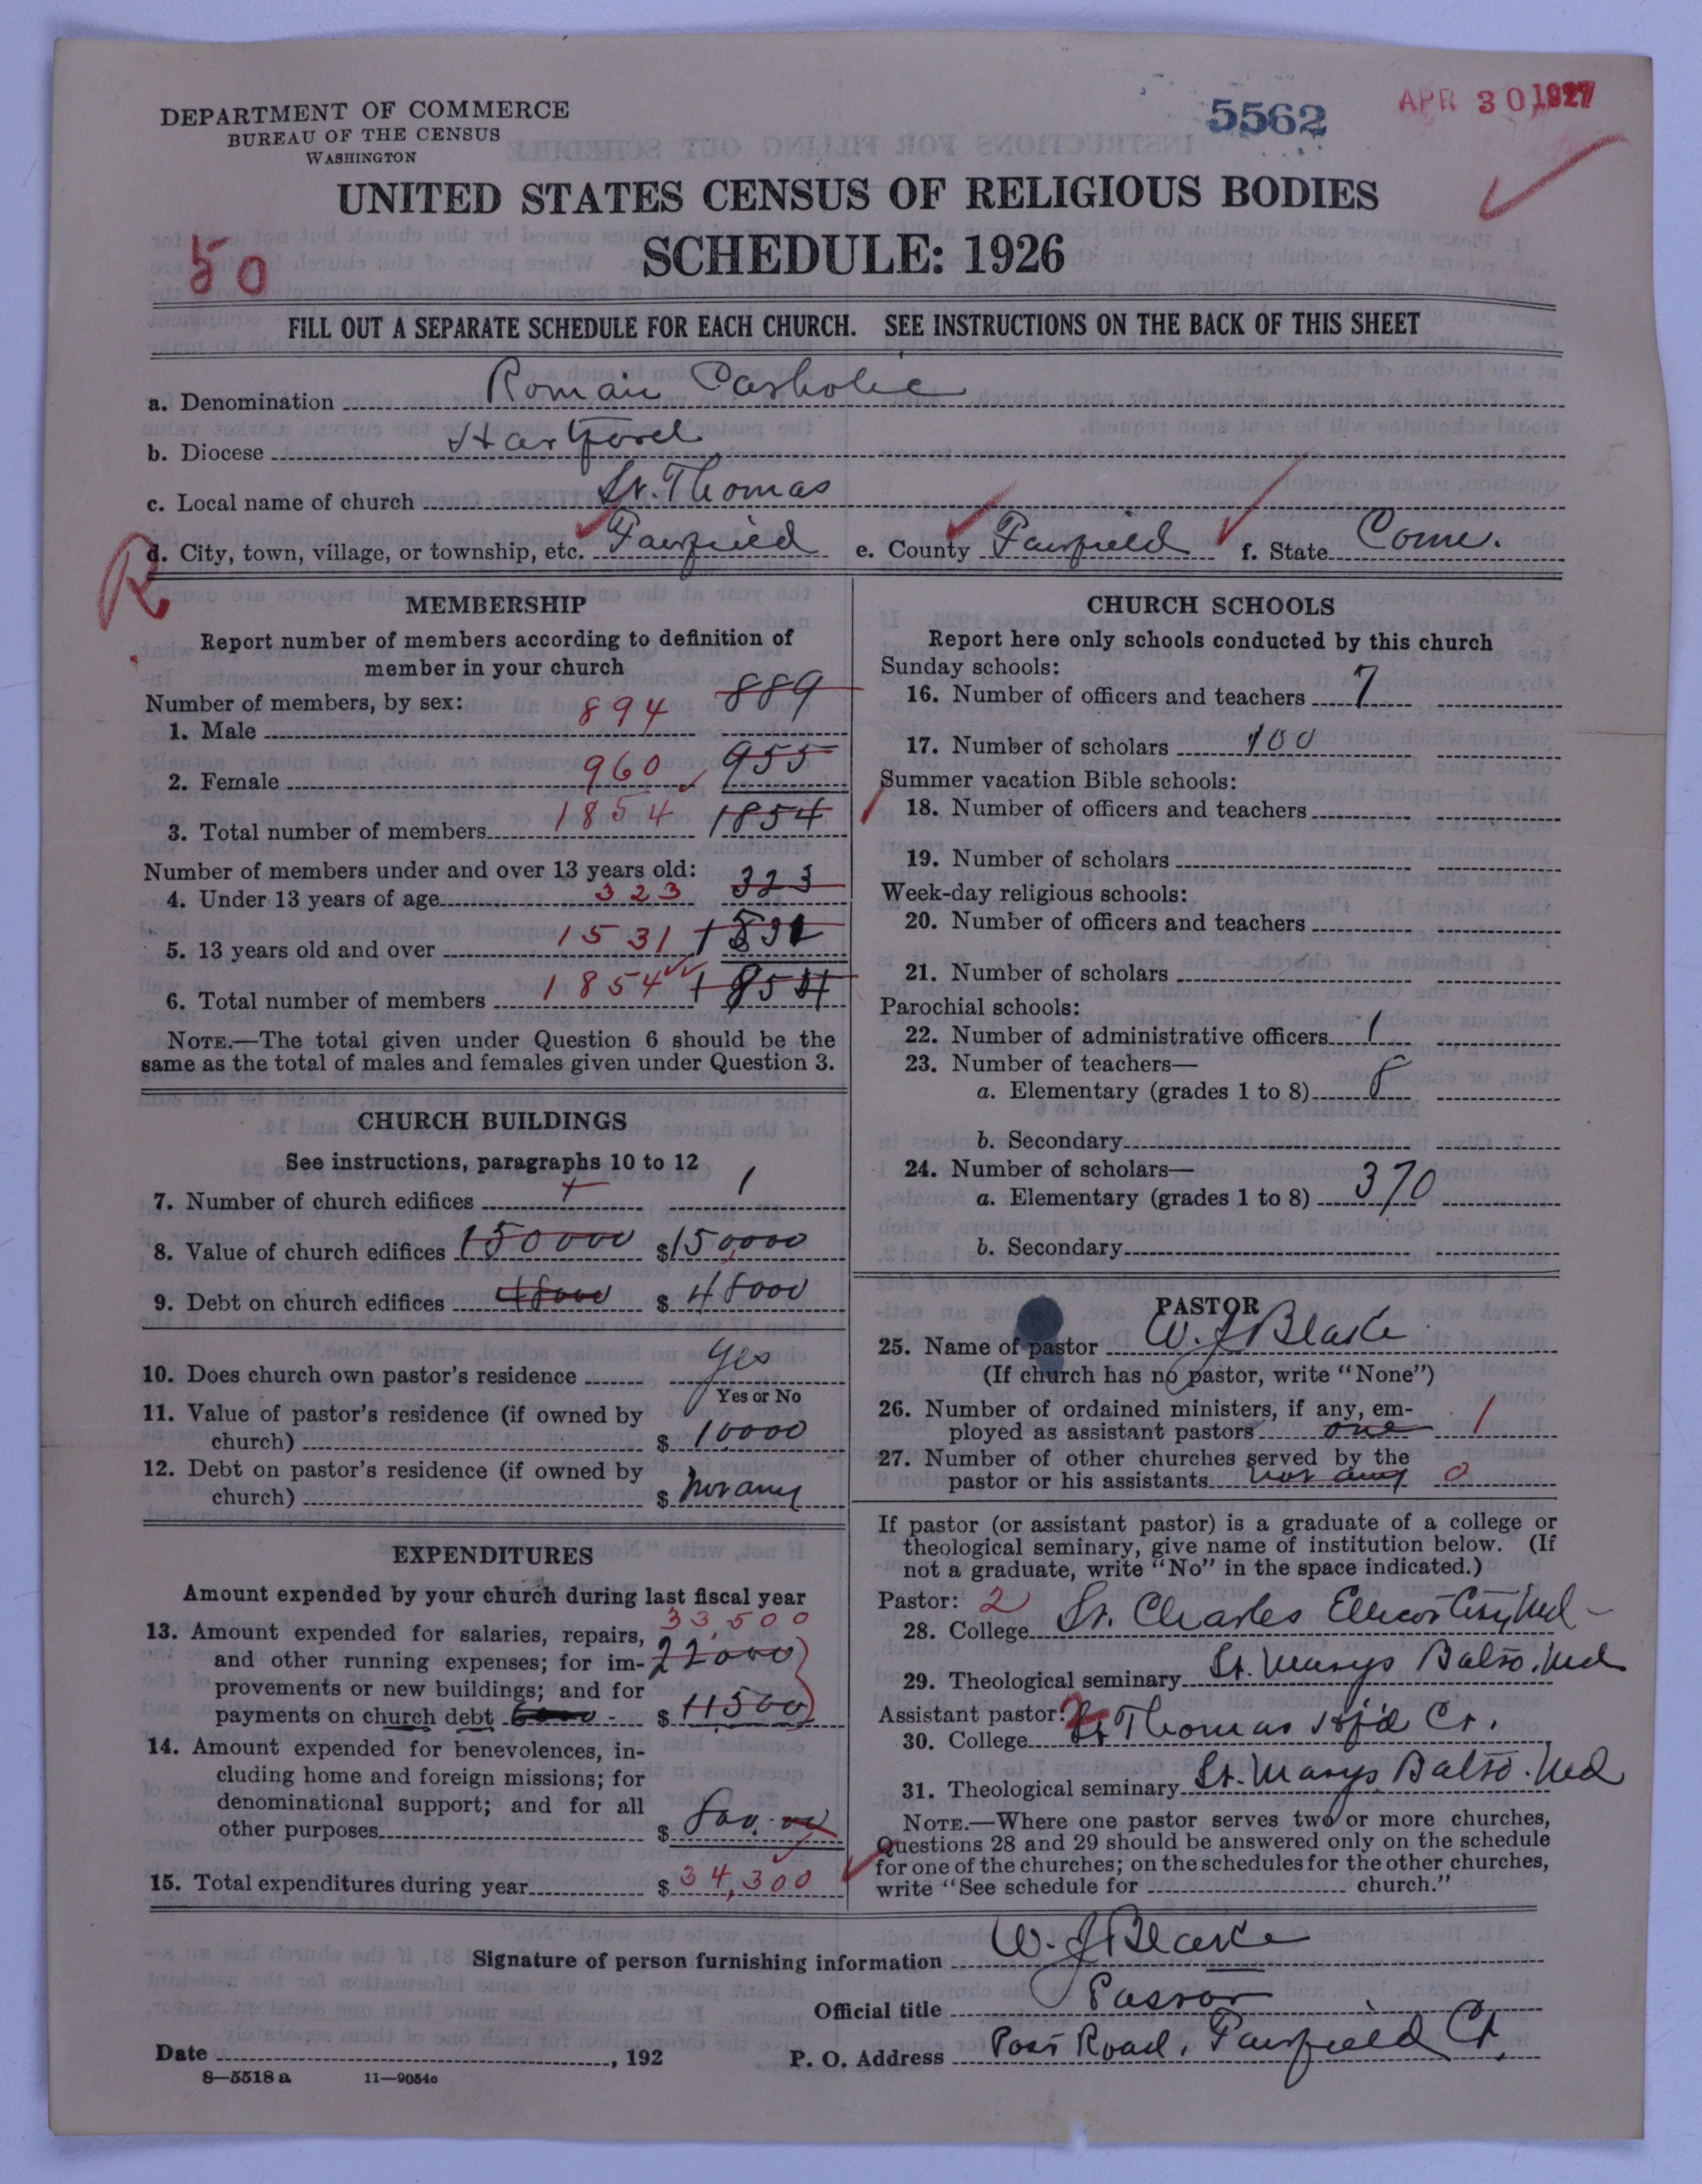 DEPARTMENT OF COMMERCE
BUREAU OF THE CENSUS
WASHINGTON
5562
APR 30 1927
UNITED STATES CENSUS OF RELIGIOUS BODIES
SCHEDULE: 1926
50
FILL OUT A SEPARATE SCHEDULE FOR EACH CHURCH. SEE INSTRUCTIONS ON THE BACK OF THIS SHEET
a. Denomination Roman Catholic
b. Diocese Hartford
c. Local name of church St. Thomas
R
d. City, town, village, or township, etc. Fairfield e. County Fairfield f. State Conn.
MEMBERSHIP
Report number of members according to definition of
member in your church
Number of members, by sex:
1. Male 894 889
2. Female 960 955
3. Total number of members 1854 1854
Number of members under and over 13 years old:
4. Under 13 years of age 323 323
5. 13 years old and over 1531 1531
6. Total number of members 1854 1854
NOTE.—The total given under Question 6 should be the
same as the total of males and females given under Question 3.
CHURCH BUILDINGS
See instructions, paragraphs 10 to 12
7. Number of church edifices 1 1
8. Value of church edifices 150000 $150,000
9. Debt on church edifices 48000 $ 48000
10. Does church own pastor's residence yes
Yes or No
11. Value of pastor's residence (if owned by
church) $ 10000
12. Debt on pastor's residence (if owned by
church) $ not any
EXPENDITURES
Amount expended by your church during last fiscal year
33,500
13. Amount expended for salaries, repairs,
and other running expenses; for im- 22000
provements or new buildings; and for
payments on church debt $ 11500
14. Amount expended for benevolences, in-
cluding home and foreign missions; for
denominational support; and for all
other purposes $ 800.00
15. Total expenditures during year $ 34,300
CHURCH SCHOOLS
Report here only schools conducted by this church
Sunday schools:
16. Number of officers and teachers 7
17. Number of scholars 100
Summer vacation Bible schools:
18. Number of officers and teachers
19. Number of scholars
Week-day religious schools:
20. Number of officers and teachers
21. Number of scholars
Parochial schools:
22. Number of administrative officers 1
23. Number of teachers—
a. Elementary (grades 1 to 8) 8
b. Secondary
24. Number of scholars—
a. Elementary (grades 1 to 8) 370
b. Secondary
PASTOR
25. Name of pastor W. J Blake
(If church has no pastor, write "None")
26. Number of ordained ministers, if any, em-
ployed as assistant pastors one 1
27. Number of other churches served by the
pastor or his assistants not any 0
If pastor (or assistant pastor) is a graduate of a college or
theological seminary, give name of institution below. (If
not a graduate, write "No" in the space indicated.)
Pastor: 2
28. College St. Charles Ellicott City Md
29. Theological seminary St. Marys Balto. Md
Assistant pastor: 2
30. College St Thomas Htf'd Ct.
31. Theological seminary St. Marys Balto. Md
NOTE.—Where one pastor serves two or more churches,
Questions 28 and 29 should be answered only on the schedule
for one of the churches; on the schedules for the other churches,
write "See schedule for church."
Signature of person furnishing information W. J Blake
Official title Pastor
Date , 192 P. O. Address Post Road, Fairfield Ct.
8—5518 a 11—9054c